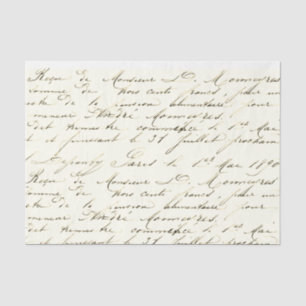 Reçu de Monsieur D. Monneyres
somme de trois cents francs, pour un
de la pension alimentaire, pour
André Monneyres.
Cet trimestre, commence le 1er Mai
et finissant le 31 juillet prochain
Paris le 1er Mai 1890
Reçu de Monsieur D. Monneyres
somme de trois cents francs, pour un
de la pension alimentaire, pour
André Monneyres.
Cet trimestre, commence le 1er Mai
et finissant le 31 juillet prochain